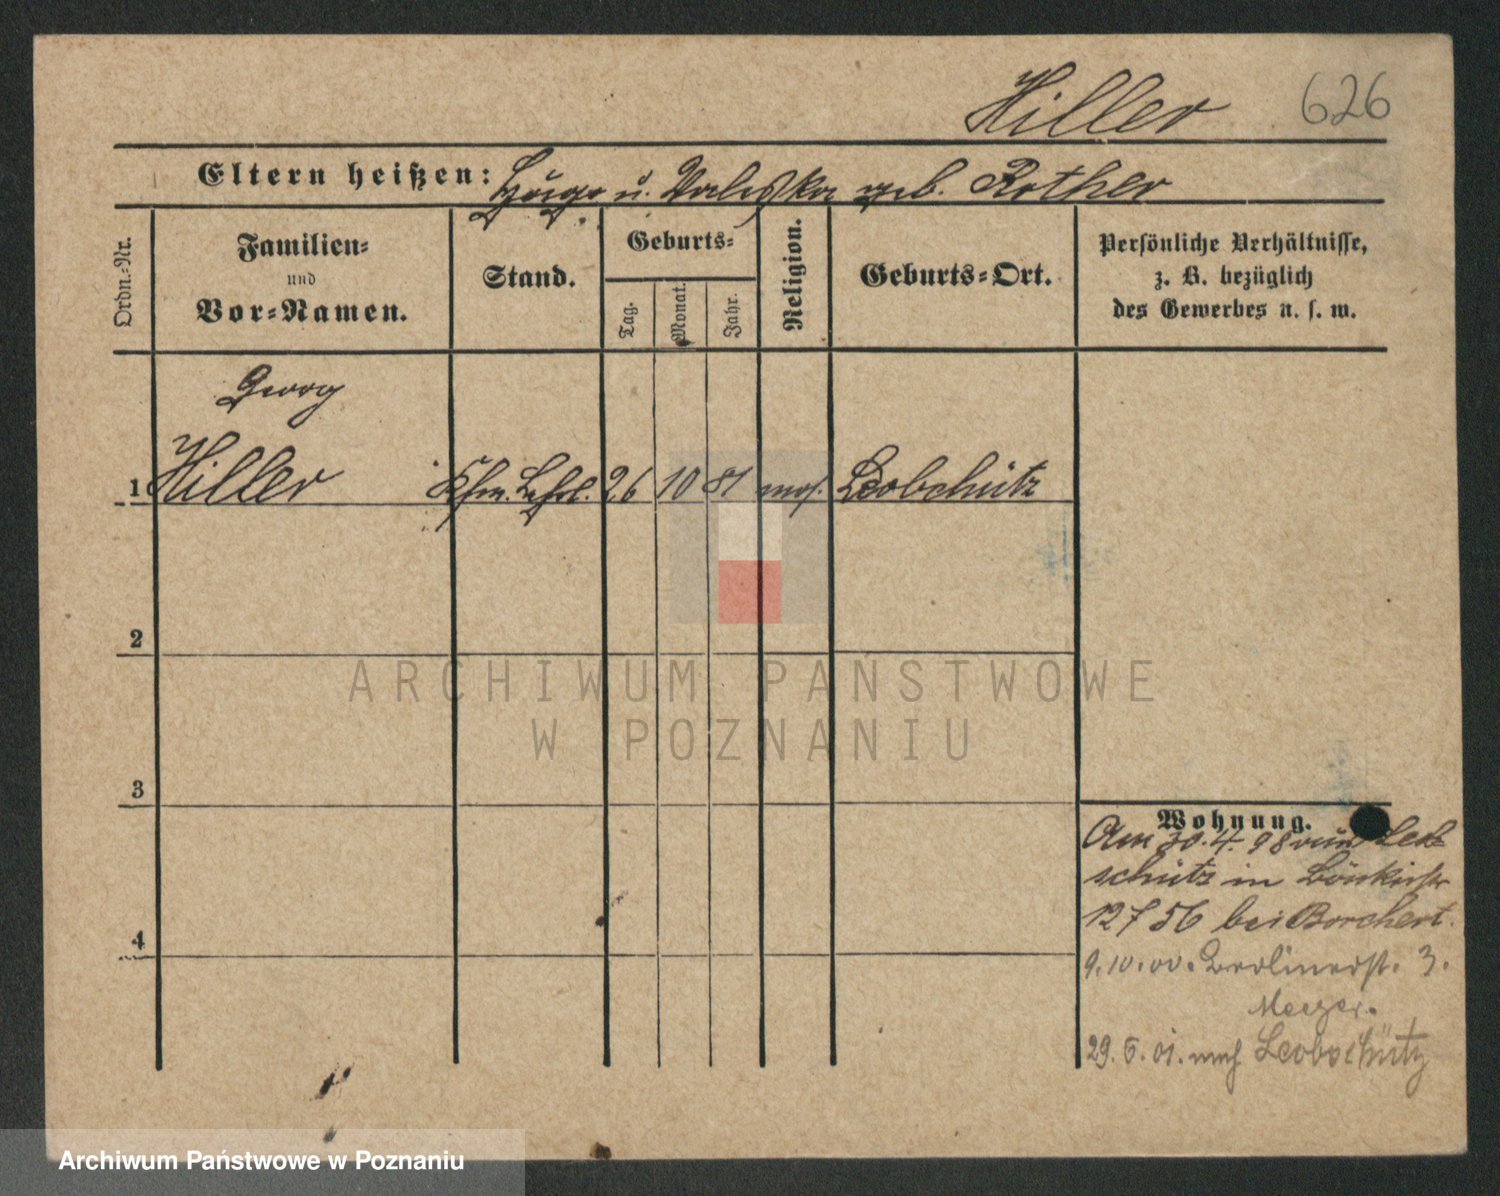 Hiller 626
Eltern heißen: Hugo u. Valeska geb. Rother
Ordn.-Nr.
Familien-
und
Vor-Namen.
Stand.
Geburts-
Tag.
Monat.
Jahr.
Religion.
Geburts-Ort.
Persönliche Verhältnisse,
z. B. bezüglich
des Gewerbes u. s. w.
Georg
1 Hiller Kfm. Lehrl. 26 10 81 mos. Leobschütz
2
3
4
Wohnung.
Am 30.4.98 von Leob
schütz in
bei Borchert.
9.10.00. Berlinerst. 3.
29. 5. 01. nach Leobschütz
ARCHIWUM PAŃSTWOWE
W POZNANIU
Archiwum Państwowe w Poznaniu